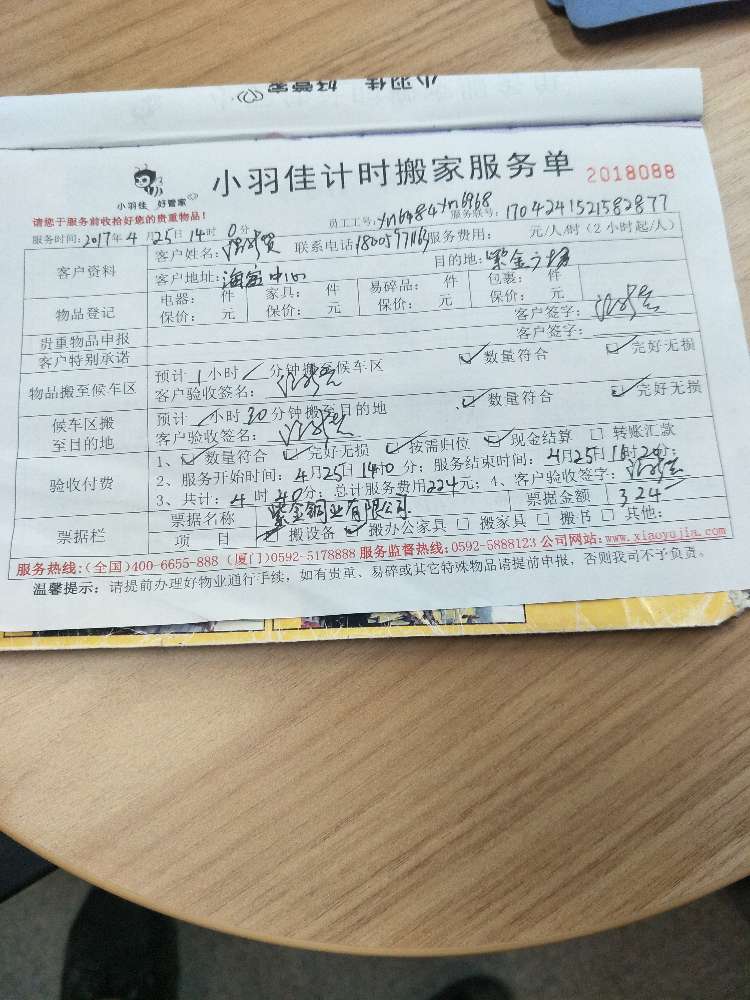 小羽佳 好管家
小羽佳 好管家
小羽佳计时搬家服务单 2018088
请您于服务前收拾好您的贵重物品!
员工工号: 服务账号: 1704241521582877
服务时间: 2017年 4月 25日 14时 0分
客户资料 客户姓名: 联系电话 服务费用: 元/人/时 (2小时起/人)
客户地址: 海富中心 目的地: 紫金广场
物品登记 电器: 件 家具: 件 易碎品: 件 包裹: 件
保价: 元 保价: 元 保价: 元 保价: 元
贵重物品申报 客户签字:
客户特别承诺 客户签字:
物品搬至候车区 预计 1 小时 / 分钟搬至候车区 数量符合 完好无损
客户验收签名:
候车区搬至目的地 预计 / 小时 30 分钟搬至目的地 数量符合 完好无损
客户验收签名:
验收付费 1、数量符合 完好无损 按需归位 现金结算 转账汇款
2、服务开始时间: 4月25日 分; 服务结束时间: 4月25日 分;
3、共计: 4 时 分; 总计服务费用 元; 4、客户验收签字:
票据栏 票据名称 紫金铜业有限公司 票据金额 324
项 目 搬设备 搬办公家具 搬家具 搬书 其他:
服务热线:(全国)400-6655-888 (厦门)0592-5178888 服务监督热线:0592-5888123 公司网站:www.xiaoyujia.com
温馨提示: 请提前办理好物业通行手续,如有贵重、易碎或其它特殊物品请提前申报,否则我司不予负责。